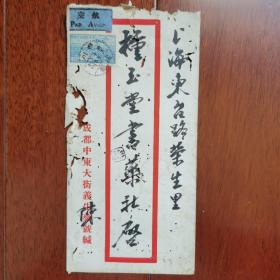 航空
Par Avion
上海東台路荣生里
種玉堂書藥社啓
成都中東大街義
號緘
陳